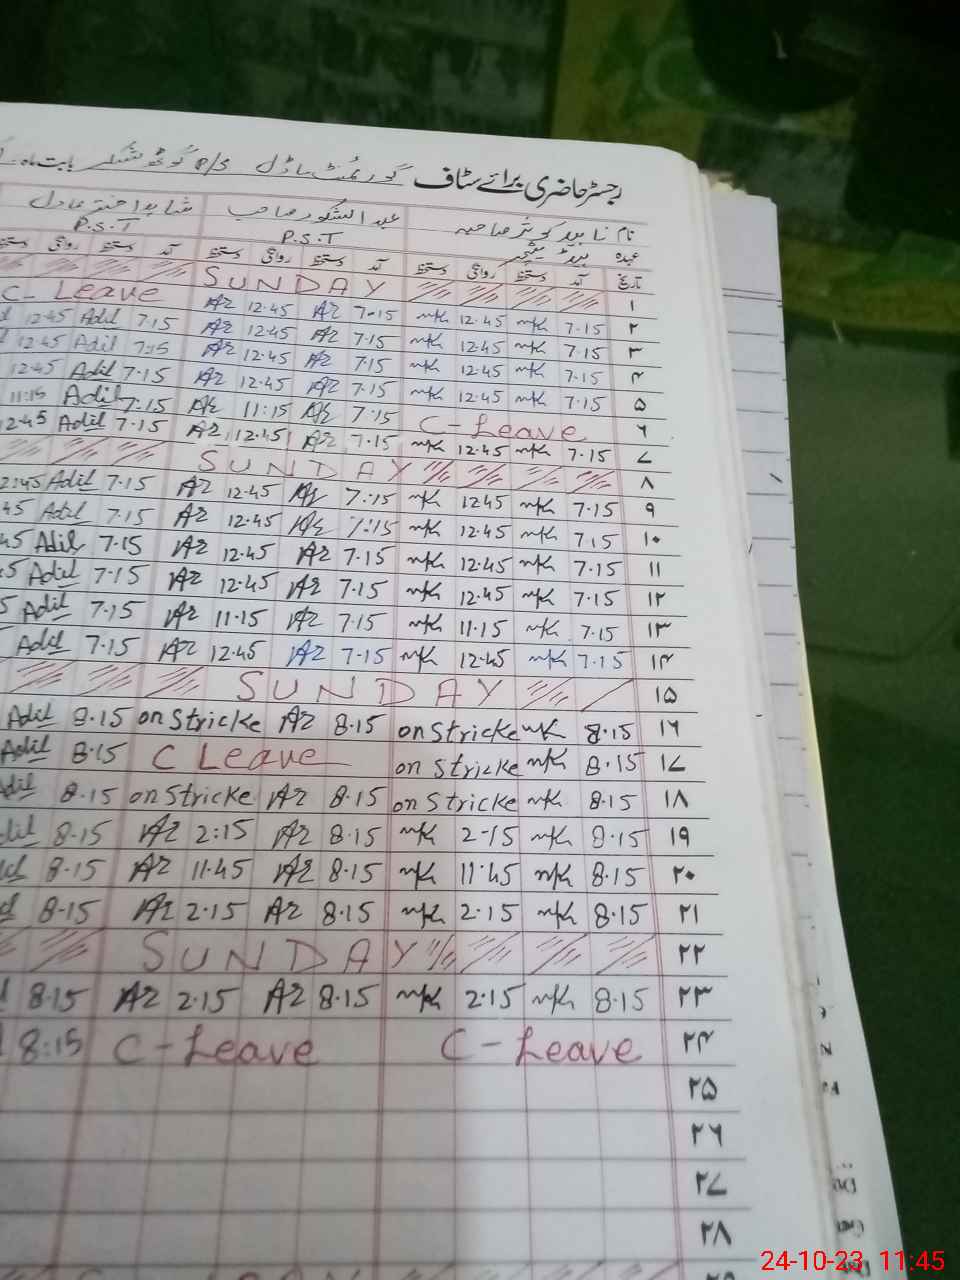 رجسٹر حاضری برائے سٹاف گورنمنٹ ماڈل P/S گوٹھ بابت ماہ
نام ناہید کوثر صاحبہ عبدالشکور صاحب شاہد اختر عادل
عہدہ ہیڈ ٹیچر P.S.T P.S.T
تاریخ آمد دستخط روانگی دستخط آمد دستخط روانگی دستخط آمد دستخط روانگی دستخط
SUNDAY ۱
C-Leave AZ 12.45 AZ 7.15 mk 12.45 mk 7.15 ۲
12.45 Adil 7.15 AZ 12.45 AZ 7.15 mk 12.45 mk 7.15 ۳
12.45 Adil 7:15 AZ 12.45 AZ 7.15 mk 12.45 mk 7.15 ۴
12.45 Adil 7.15 AZ 12.45 AZ 7.15 mk 12.45 mk 7.15 ۵
11:15 Adil 7:15 AZ 11:15 AZ 7:15 C-Leave ۶
12.45 Adil 7.15 AZ 12.45 AZ 7.15 mk 12.45 mk 7.15 ۷
SUNDAY ۸
12:45 Adil 7.15 AZ 12.45 AZ 7:15 mk 12.45 mk 7.15 ۹
45 Adil 7.15 AZ 12.45 AZ 7:15 mk 12.45 mk 7.15 ۱۰
45 Adil 7.15 AZ 12.45 AZ 7.15 mk 12.45 mk 7.15 ۱۱
5 Adil 7.15 AZ 12.45 AZ 7.15 mk 12.45 mk 7.15 ۱۲
5 Adil 7.15 AZ 11.15 AZ 7.15 mk 11.15 mk 7.15 ۱۳
Adil 7.15 AZ 12.45 AZ 7.15 mk 12.45 mk 7.15 ۱۴
SUNDAY ۱۵
Adil 8.15 on Stricke AZ 8.15 on Stricke mk 8.15 ۱۶
Adil 8.15 C Leave on Stricke mk 8.15 ۱۷
Adil 8.15 on Stricke AZ 8.15 on Stricke mk 8.15 ۱۸
dil 8.15 AZ 2:15 AZ 8.15 mk 2-15 mk 8.15 ۱۹
8.15 AZ 11.45 AZ 8.15 mk 11.45 mk 8.15 ۲۰
8.15 AZ 2.15 AZ 8.15 mk 2.15 mk 8.15 ۲۱
SUNDAY ۲۲
8.15 AZ 2.15 AZ 8.15 mk 2.15 mk 8.15 ۲۳
8:15 C-Leave C-Leave ۲۴
۲۵
۲۶
۲۷
۲۸
24-10-23 11:45